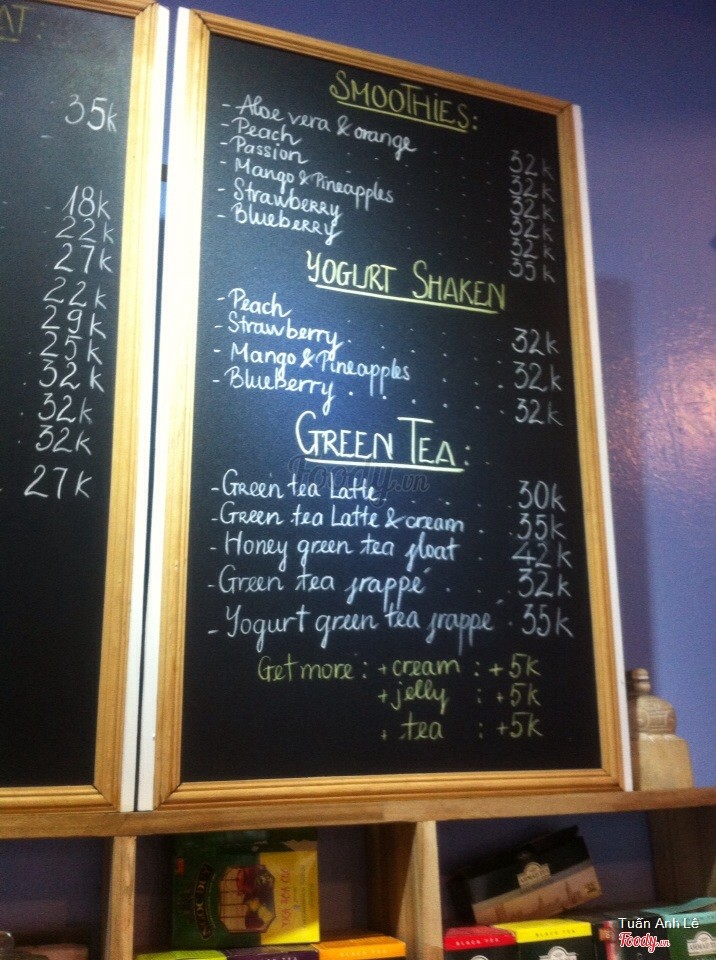 AT
35k
18k
22k
27k
22k
29k
25k
32k
32k
32k
27k
SMOOTHIES:
- Aloe vera & orange 32k
- Peach 32k
- Passion 32k
- Mango & Pineapples 32k
- Strawberry 32k
- Blueberry 35k
YOGURT SHAKEN
- Peach
- Strawberry 32k
- Mango & Pineapples 32k
- Blueberry 32k
GREEN TEA:
- Green tea Latte 30k
- Green tea Latte & cream 35k
- Honey green tea float 42k
- Green tea frappé 32k
- Yogurt green tea frappé 35k
Get more: + cream : +5k
+ jelly : +5k
+ tea : +5k
Foody.vn
BLACK TEA
Tuấn Anh Lê
Foody.vn